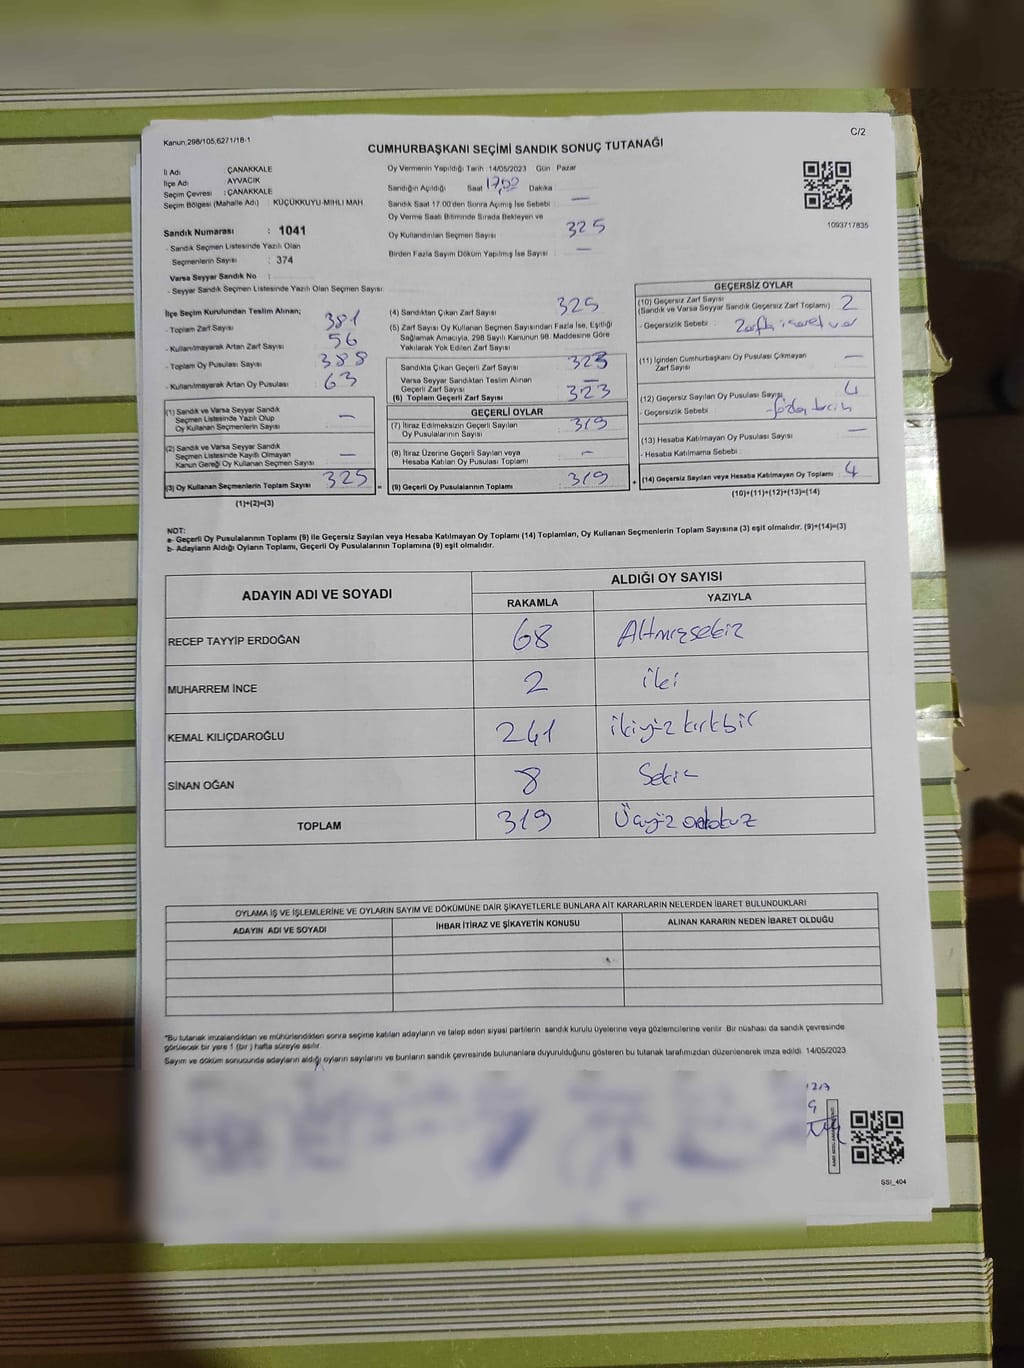 Kanun:298/105,6271/18-1
C/2
CUMHURBAŞKANI SEÇİMİ SANDIK SONUÇ TUTANAĞI
İl Adı : ÇANAKKALE
İlçe Adı : AYVACIK
Seçim Çevresi : ÇANAKKALE
Seçim Bölgesi (Mahalle Adı) : KÜÇÜKKUYU-MIHLI MAH.
Sandık Numarası : 1041
- Sandık Seçmen Listesinde Yazılı Olan
Seçmenlerin Sayısı : 374
Varsa Seyyar Sandık No :
- Seyyar Sandık Seçmen Listesinde Yazılı Olan Seçmen Sayısı:
Oy Vermenin Yapıldığı Tarih :14/05/2023 Gün : Pazar
Sandığın Açıldığı Saat 17,00 Dakika
Sandık Saat 17.00'den Sonra Açılmış İse Sebebi : —
Oy Verme Saati Bitiminde Sırada Bekleyen ve
Oy Kullandırılan Seçmen Sayısı : 325
Birden Fazla Sayım Döküm Yapılmış İse Sayısı : —
1093717835
İlçe Seçim Kurulundan Teslim Alınan;
- Toplam Zarf Sayısı : 381
- Kullanılmayarak Artan Zarf Sayısı : 56
- Toplam Oy Pusulası Sayısı : 388
- Kullanılmayarak Artan Oy Pusulası : 63
(1) Sandık ve Varsa Seyyar Sandık
Seçmen Listesinde Yazılı Olup
Oy Kullanan Seçmenlerin Sayısı —
(2) Sandık ve Varsa Seyyar Sandık
Seçmen Listesinde Kayıtlı Olmayan
Kanun Gereği Oy Kullanan Seçmen Sayısı —
(3) Oy Kullanan Seçmenlerin Toplam Sayısı 325 =
(1)+(2)=(3)
(4) Sandıktan Çıkan Zarf Sayısı 325
(5) Zarf Sayısı Oy Kullanan Seçmen Sayısından Fazla İse, Eşitliği
Sağlamak Amacıyla, 298 Sayılı Kanunun 98. Maddesine Göre
Yakılarak Yok Edilen Zarf Sayısı
Sandıkta Çıkan Geçerli Zarf Sayısı 323
Varsa Seyyar Sandıktan Teslim Alınan
Geçerli Zarf Sayısı —
(6) Toplam Geçerli Zarf Sayısı 323
GEÇERLİ OYLAR
(7) İtiraz Edilmeksizin Geçerli Sayılan
Oy Pusulalarının Sayısı 319
(8) İtiraz Üzerine Geçerli Sayılan veya
Hesaba Katılan Oy Pusulası Toplamı —
(9) Geçerli Oy Pusulalarının Toplamı 319 +
GEÇERSİZ OYLAR
(10) Geçersiz Zarf Sayısı
(Sandık ve Varsa Seyyar Sandık Geçersiz Zarf Toplamı) 2
- Geçersizlik Sebebi : Zarfta işaret var
(11) İçinden Cumhurbaşkanı Oy Pusulası Çıkmayan
Zarf Sayısı —
(12) Geçersiz Sayılan Oy Pusulası Sayısı 4
- Geçersizlik Sebebi
(13) Hesaba Katılmayan Oy Pusulası Sayısı —
- Hesaba Katılmama Sebebi :
(14) Geçersiz Sayılan veya Hesaba Katılmayan Oy Toplamı 4
(10)+(11)+(12)+(13)=(14)
NOT:
a- Geçerli Oy Pusulalarının Toplamı (9) ile Geçersiz Sayılan veya Hesaba Katılmayan Oy Toplamı (14) Toplamları, Oy Kullanan Seçmenlerin Toplam Sayısına (3) eşit olmalıdır. (9)+(14)=(3)
b- Adayların Aldığı Oyların Toplamı, Geçerli Oy Pusulalarının Toplamına (9) eşit olmalıdır.
ADAYIN ADI VE SOYADI ALDIĞI OY SAYISI
RAKAMLA YAZIYLA
RECEP TAYYİP ERDOĞAN 68 Altmışsekiz
MUHARREM İNCE 2 iki
KEMAL KILIÇDAROĞLU 241 ikiyüz kırkbir
SİNAN OĞAN 8 Sekiz
TOPLAM 319 Üçyüz ondokuz
OYLAMA İŞ VE İŞLEMLERİNE VE OYLARIN SAYIM VE DÖKÜMÜNE DAİR ŞİKAYETLERLE BUNLARA AİT KARARLARIN NELERDEN İBARET BULUNDUKLARI
ADAYIN ADI VE SOYADI İHBAR İTİRAZ VE ŞİKAYETİN KONUSU ALINAN KARARIN NEDEN İBARET OLDUĞU
*Bu tutanak imzalandıktan ve mühürlendikten sonra seçime katılan adayların ve talep eden siyasi partilerin sandık kurulu üyelerine veya gözlemcilerine verilir. Bir nüshası da sandık çevresinde
görülecek bir yere 1 (bir) hafta süreyle asılır.
Sayım ve döküm sonucunda adayların aldığı oyların sayılarını ve bunların sandık çevresinde bulunanlara duyurulduğunu gösteren bu tutanak tarafımızdan düzenlenerek imza edildi. 14/05/2023
SSI_404